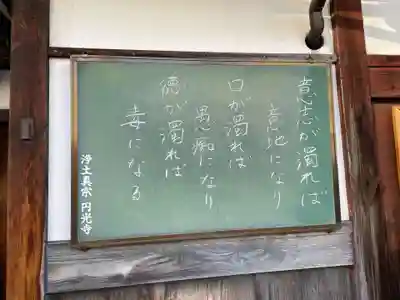 意志が濁れば
意地になり
口が濁れば
愚痴になり
徳が濁れば
毒になる
浄土真宗 円光寺